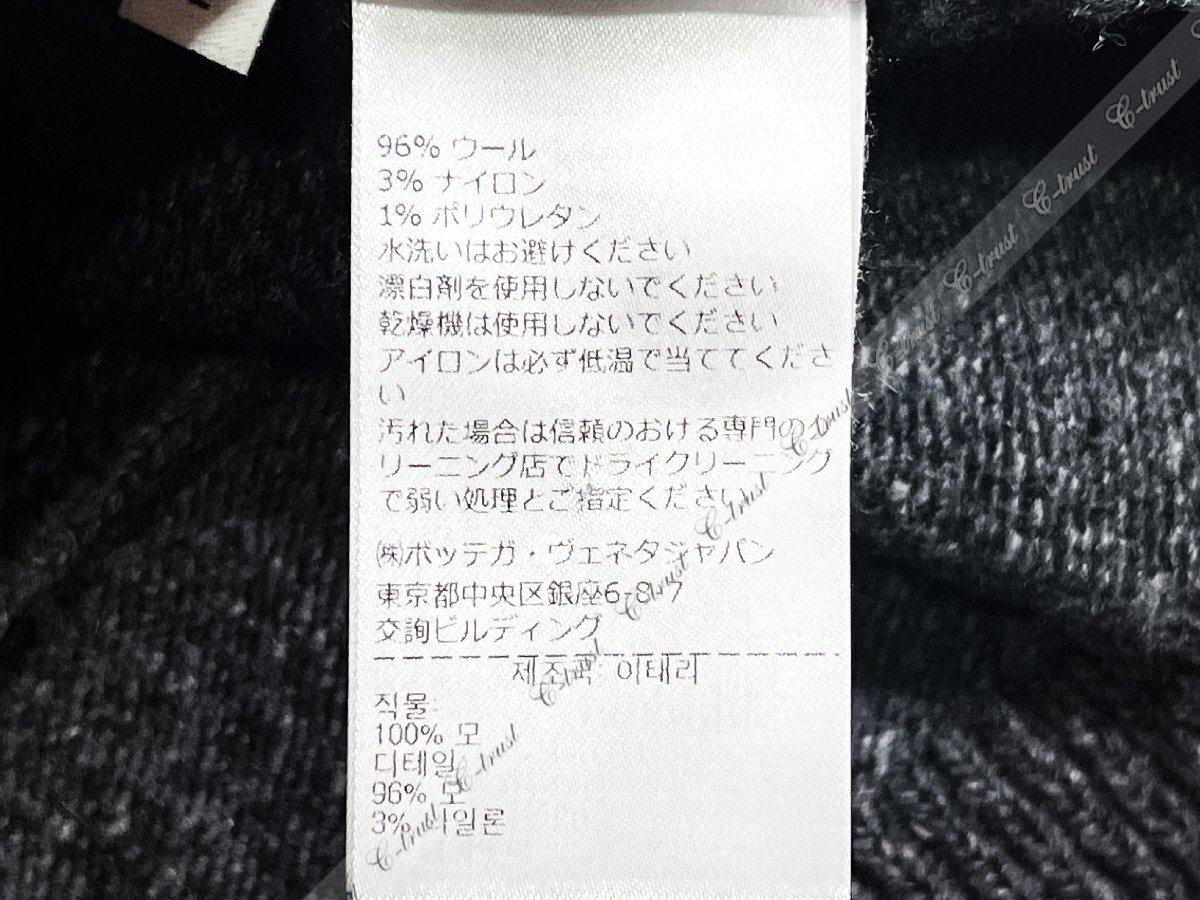 96% ウール
3% ナイロン
1% ポリウレタン
水洗いはお避けください
漂白剤を使用しないでください
乾燥機は使用しないでください
アイロンは必ず低温で当ててくださ
い
汚れた場合は信頼のおける専門の
リーニング店でドライクリーニング
で弱い処理とご指定ください
㈱ボッテガ・ヴェネタジャパン
東京都中央区銀座6-8-7
交詢ビルディング
제조국: 이태리
직물:
100% 모
디테일
96% 모
3% 나일론
C-trust
C-trust
C-trust
C-trust
C-trust
C-trust
C-trust
C-trust
C-trust
C-trust